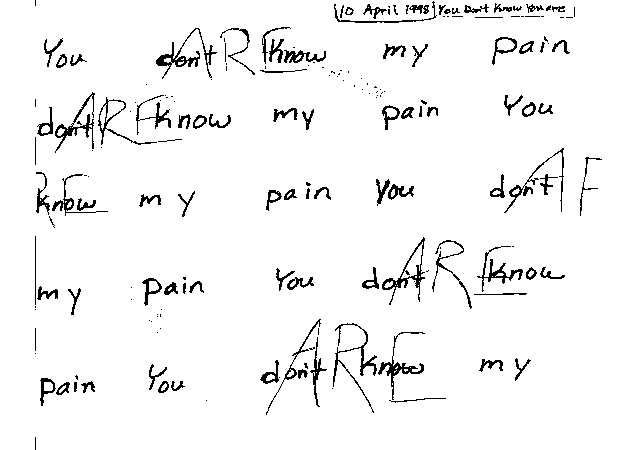 10 April 1998 You Don't Know You are
You don't ARE know my pain
don't ARE know my pain You
RE know my pain You don't A F
my pain You don't ARE know
pain You don't ARE know my